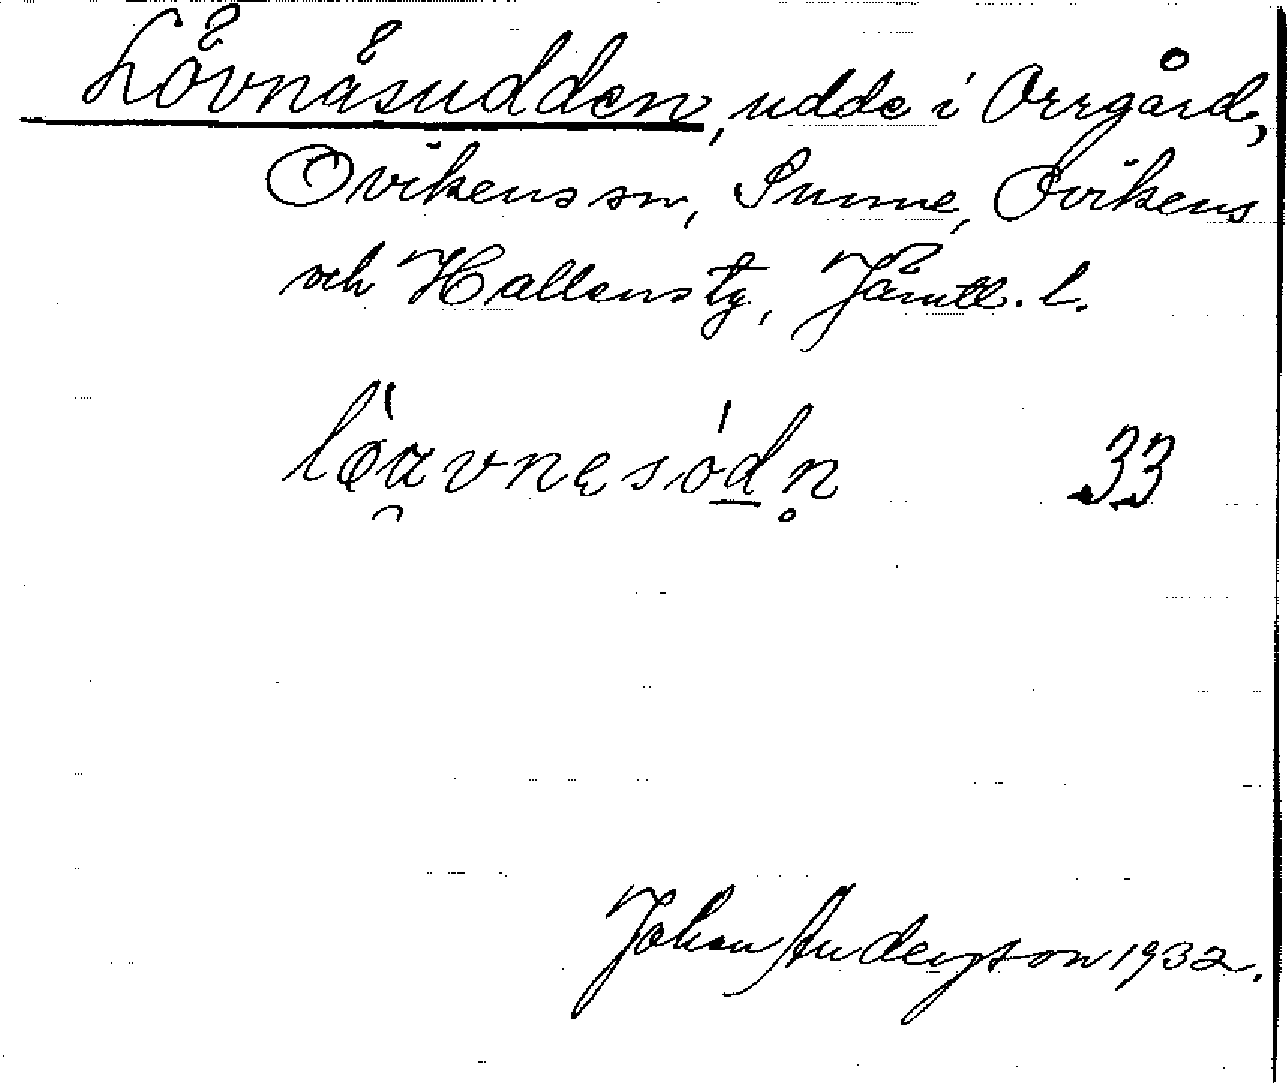 Lövnäsudden, udde i Orrgård,
Ovikens sn, Sunne, Ovikens
och Hallens tg, Jämtl. l.
33
Johan Anderzson 1932.